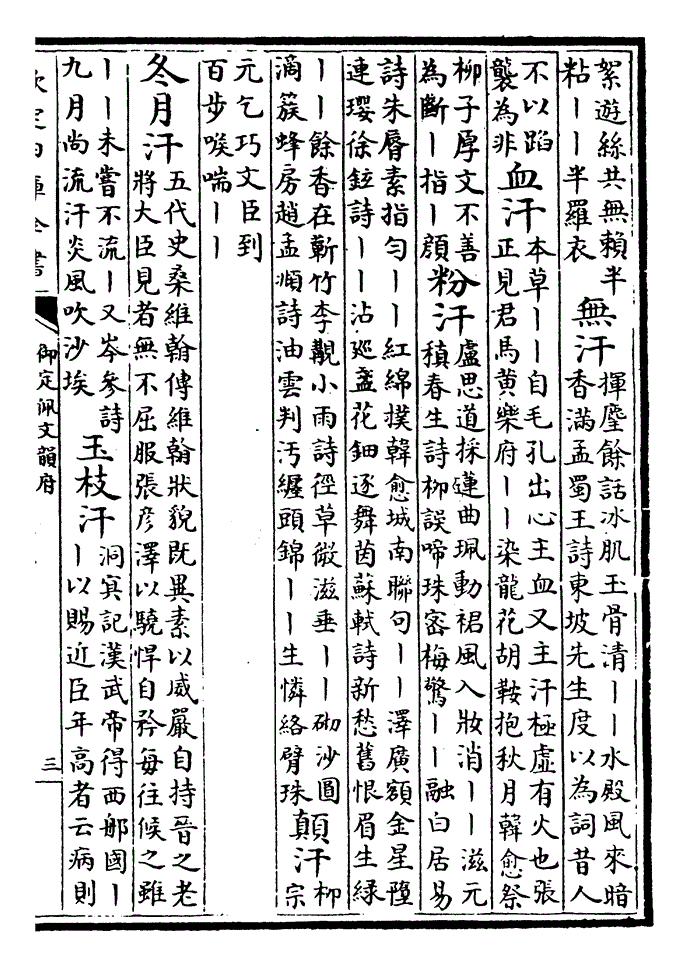 絮遊絲共無賴半
粘丨丨半羅衣
無汗
揮麈餘話冰肌玉骨清丨丨水殿風來暗
香滿孟蜀王詩東坡先生度以為詞昔人
不以蹈
襲為非
血汗
本草丨丨自毛孔出心主血又主汗極虛有火也張
正見君馬黃樂府丨丨染龍花胡鞍抱秋月韓愈祭
柳子厚文不善
為斷丨指丨顔
粉汗
盧思道採蓮曲珮動裙風入妝消丨丨滋元
稹春生詩柳誤啼珠密梅驚丨丨融白居易
詩朱脣素指勻丨丨紅綿撲韓愈城南聯句丨丨澤廣額金星墮
連瓔徐鉉詩丨丨沾廻盞花鈿逐舞茵蘇軾詩新愁舊恨眉生緑
丨丨餘香在蘄竹李觀小雨詩徑草微滋垂丨丨砌沙圓
滴簇蜂房趙孟頫詩油雲判汚纒頭錦丨丨生憐絡臂珠
顛汗
柳
宗
元乞巧文臣到
百步喉喘丨丨
冬月汗
五代史桑維翰傳維翰狀貌既異素以威嚴自持晉之老
將大臣見者無不屈服張彥澤以驍悍自矜每往候之雖
丨丨未嘗不流丨又岑參詩
九月尚流汗炎風吹沙埃
玉枝汗
洞冥記漢武帝得西那國丨
丨以賜近臣年高者云病則
欽定四庫全書
御定佩文韻府
三